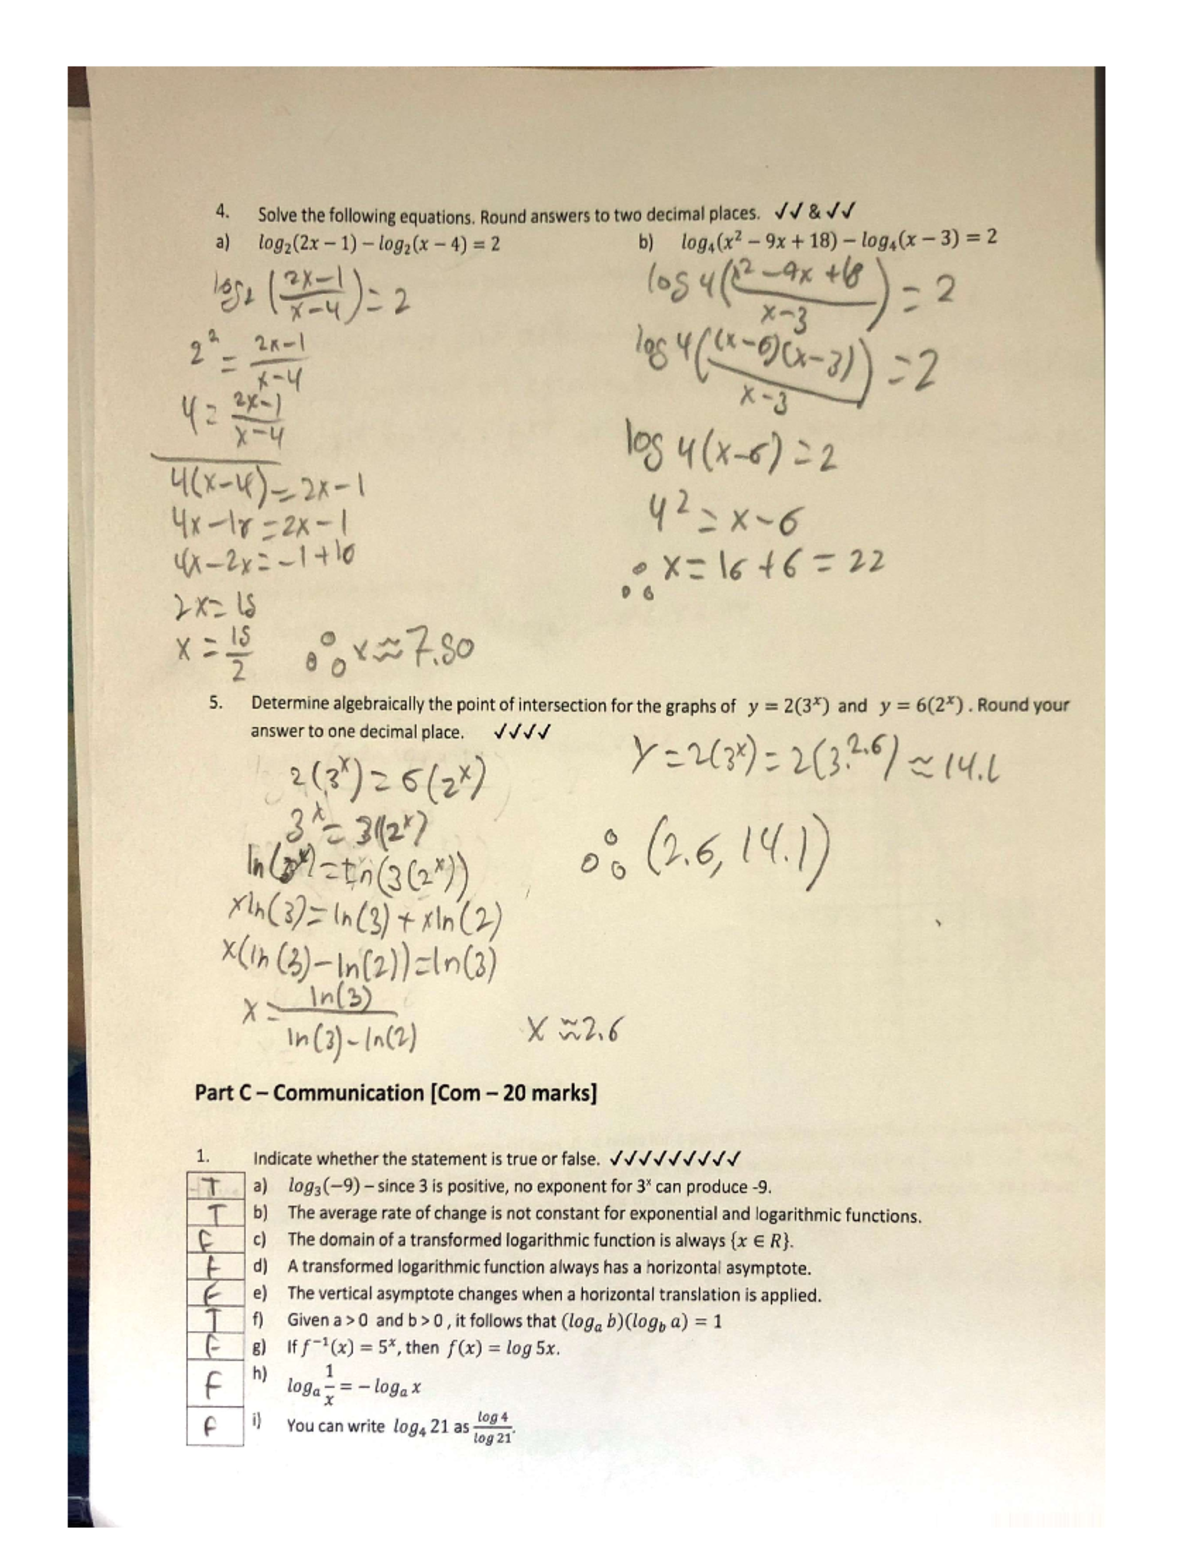 4. Solve the following equations. Round answers to two decimal places. ✓✓ & ✓✓
a) log₂(2x – 1) – log₂(x – 4) = 2
b) log₄(x² – 9x + 18) – log₄(x – 3) = 2
log₂ ((2x-1)/(x-4)) = 2
2² = (2x-1)/(x-4)
4 = (2x-1)/(x-4)
4(x-4) = 2x-1
4x-16 = 2x-1
4x-2x = -1+16
2x = 15
x = 15/2 ∴ x ≈ 7.50
log 4 ((x²-9x+18)/(x-3)) = 2
log 4 (((x-6)(x-3))/(x-3)) = 2
log 4 (x-6) = 2
4² = x-6
∴ x = 16+6 = 22
5. Determine algebraically the point of intersection for the graphs of y = 2(3ˣ) and y = 6(2ˣ) . Round your
answer to one decimal place. ✓✓✓✓
2(3ˣ) = 6(2ˣ)
3ˣ = 3(2ˣ)
ln(3ˣ) = ln(3(2ˣ))
xln(3) = ln(3) + xln(2)
x(ln(3)-ln(2)) = ln(3)
x = ln(3)/(ln(3)-ln(2)) x ≈ 2.6
y = 2(3ˣ) = 2(3^2.6) ≈ 14.1
∴ (2.6, 14.1)
Part C – Communication [Com – 20 marks]
1. Indicate whether the statement is true or false. ✓✓✓✓✓✓✓✓✓
T a) log₃(−9) – since 3 is positive, no exponent for 3ˣ can produce -9.
T b) The average rate of change is not constant for exponential and logarithmic functions.
F c) The domain of a transformed logarithmic function is always {x ∈ R}.
F d) A transformed logarithmic function always has a horizontal asymptote.
F e) The vertical asymptote changes when a horizontal translation is applied.
T f) Given a > 0 and b > 0 , it follows that (logₐ b)(log_b a) = 1
F g) If f⁻¹(x) = 5ˣ, then f(x) = log 5x.
F h) logₐ 1/x = − logₐ x
F i) You can write log₄ 21 as log 4/log 21.